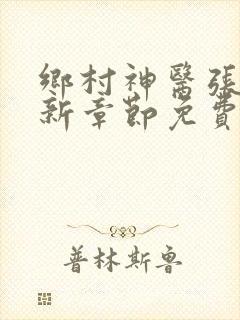 鄉村神醫張
新章節免費
普林斯魯